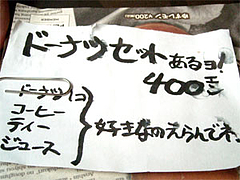 ゆずレモン¥200
ドーナツセットあるヨ!
400エン
ドーナツ1コ
コーヒー
ティー
ジュース
好きなのえらんでネ。